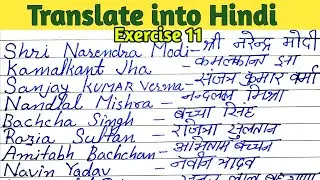 Translate into Hindi
Exercise 11
Shri Narendra Modi - श्री नरेन्द्र मोदी
Kamalkant Jha - कमलकान्त झा
Sanjay KUMAR Verma - संजय कुमार वर्मा
Nandlal Mishra - नन्दलाल मिश्रा
Bachcha Singh - बच्चा सिंह
Rozia Sultan - रजिया सुल्तान
Amitabh Bachchan - अमिताभ बच्चन
Navin Yadav - नवीन यादव
लाल